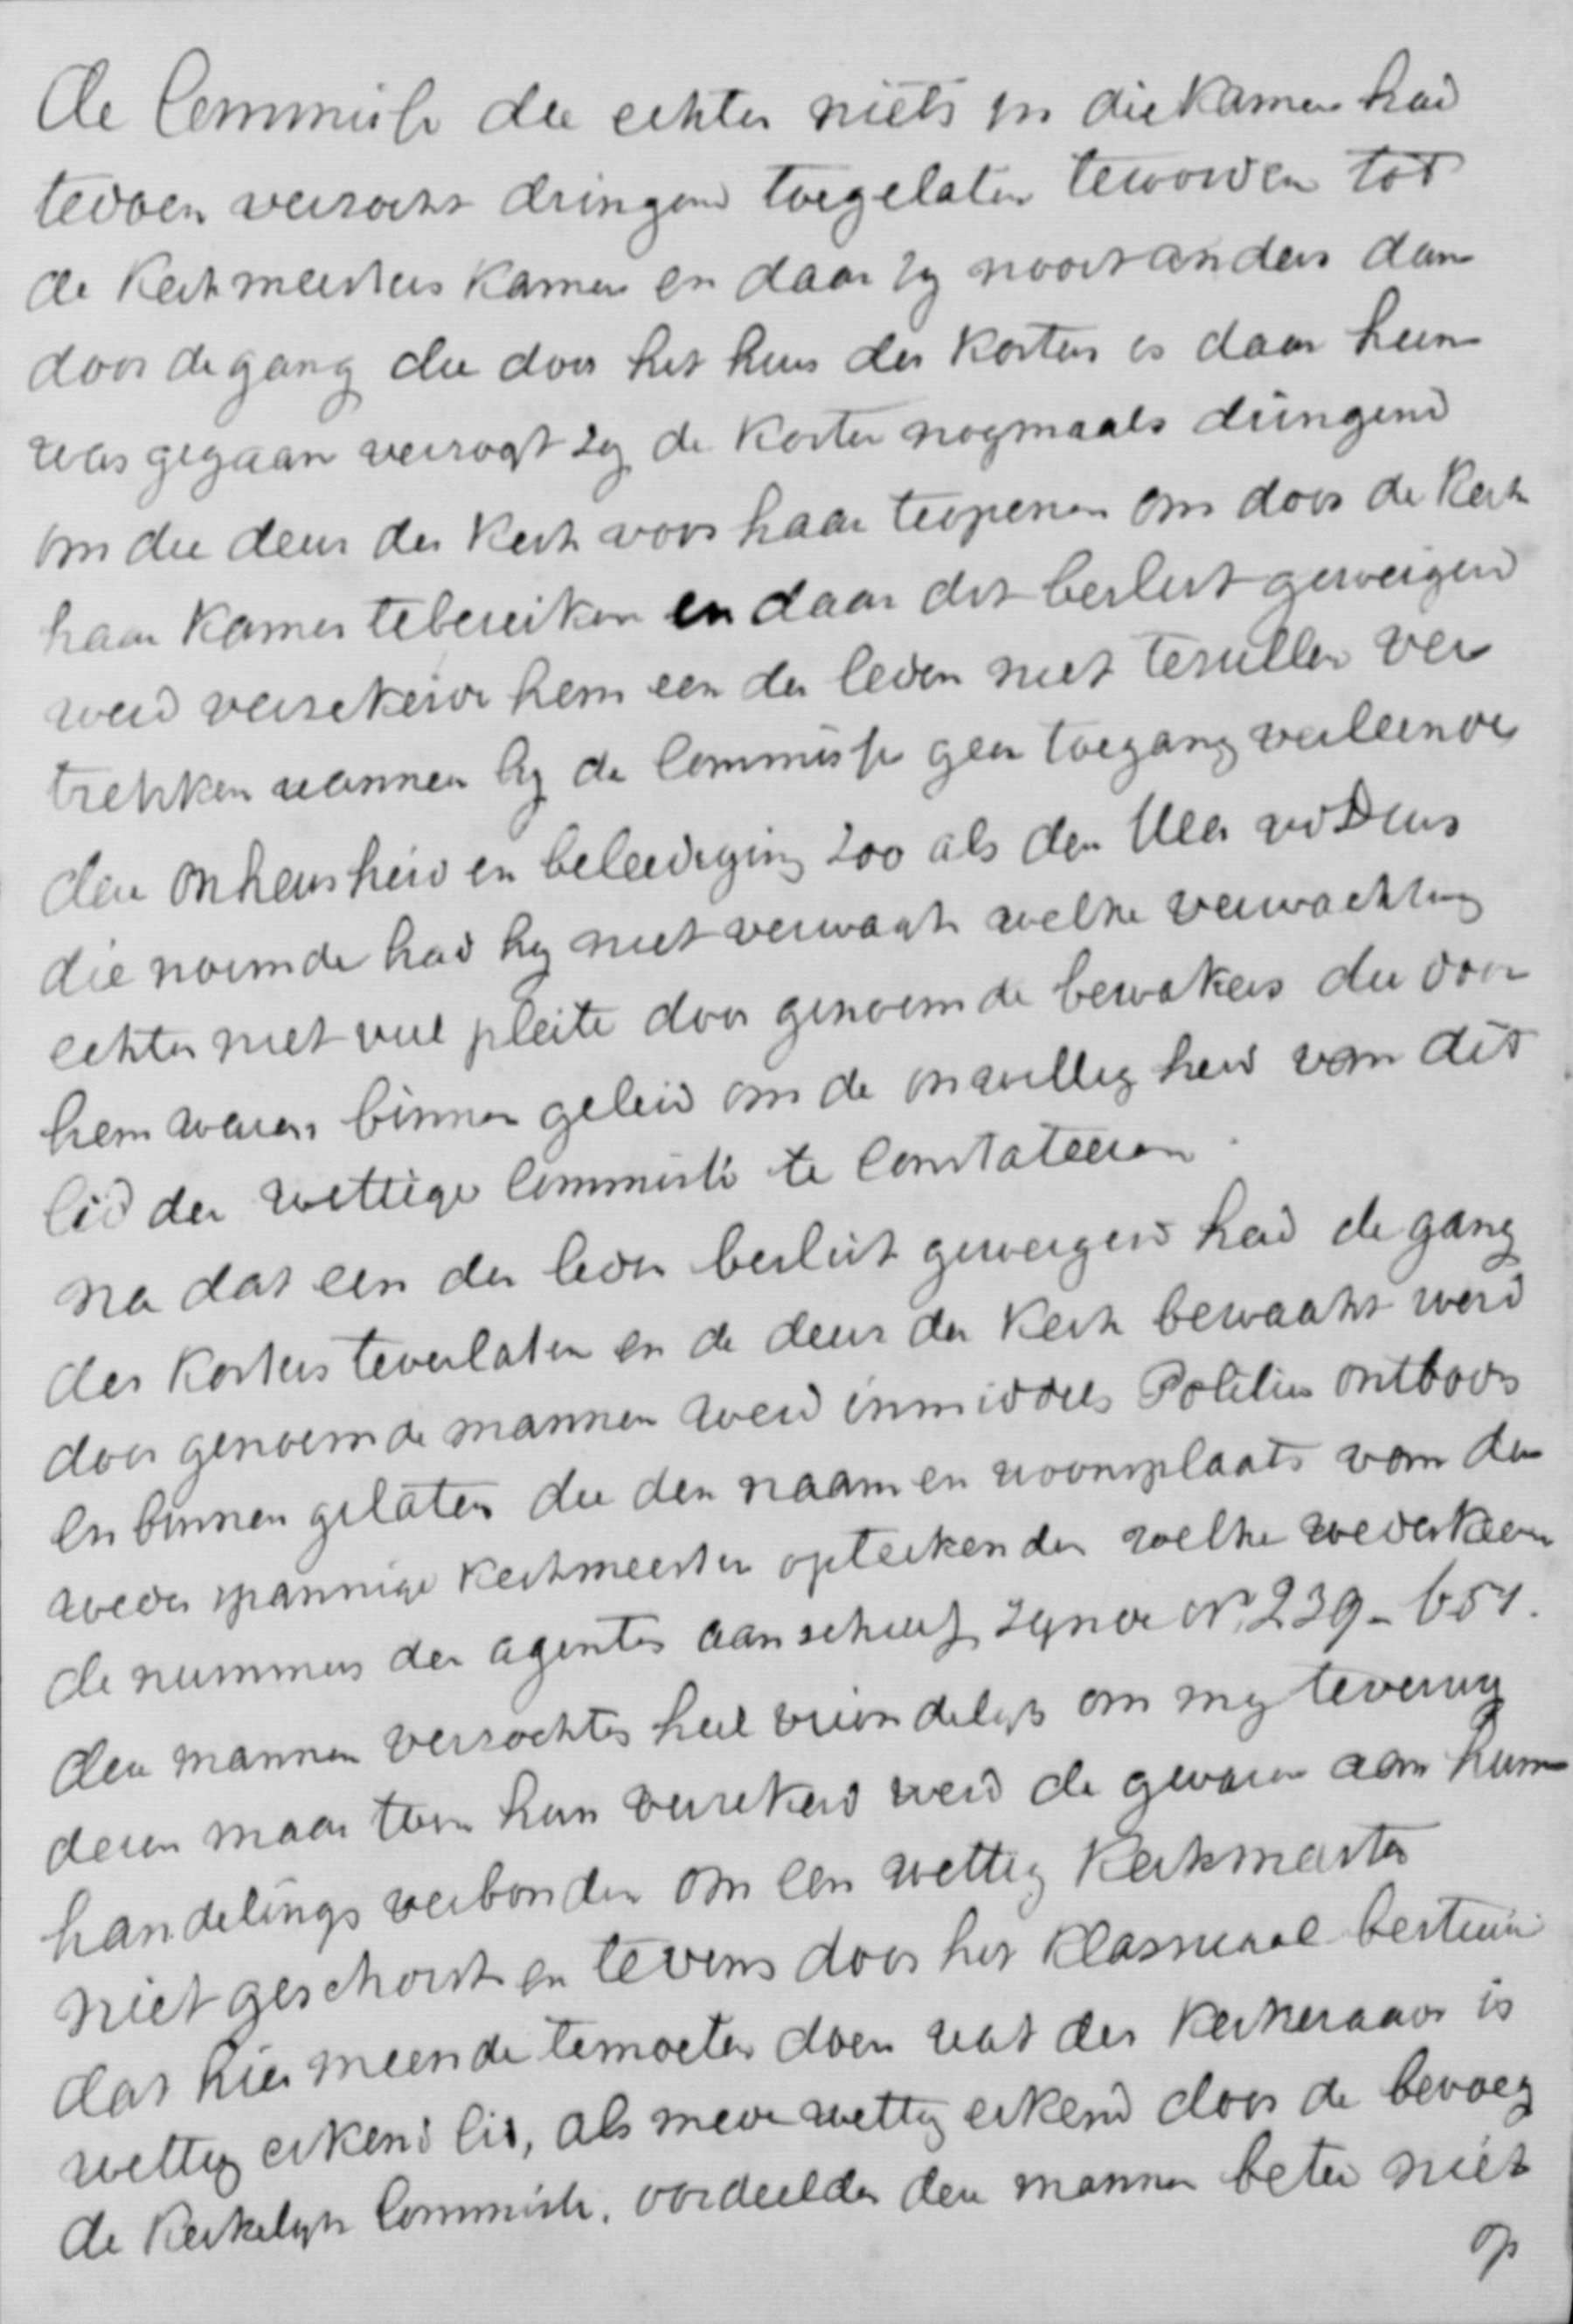 de Commissie die echter niets in die Kamer had
tedoen versocht dringend toegelaten teworden tot
de Kerkmeesters Kamer en daar zy nooit anders dan
door de gang die door het huis der Koster is daar heen
was gegaan verzogt zy de Koster nogmaals dringend
om die deur der Kerk voor haar teopenen om door de Kerk
haar Kamer tebereiken en daar dit beslist geweigerd
werd versekerde hem een der leden niet tesullen ver
trekken wanneer hy de Commissie geen toegang verleende
deze onheusheid en beleediging zoo als den Heer
die noemde had hy niet verwagt welke verwachting
echter niet veel pleite door genoemde bewakers die door
hem waren binnen geleid om de onwilligheid van dit
lid der wettige Commissie te Constateeren.
na dat een der leden beslist geweigerd had de gang
des Kosters teverlaten en de deur der Kerk bewaakt werd
door genoemde mannen werd inmiddels Politie ontboden
en binnen gelaten die den naam en woonplaats van den
weder spannige Kerkmeester opteekenden welke wederkeer
de nummers der agenten aanschreef zynde No. 239 - 651.
deze mannen verzochten heel vriendelyk om my teverwy
deren maar toen hun verzekerd werd de gevaren aan hun
handelings verbonden om een wettig Kerkmeester
niet geschorst en tevens door het Klassicaal bestuur
dat hier meende temoeten doen wat des Kerkeraad is
wettig erkend lid, als mede wettig erkend door de bevoeg
de Kerkelyke Commissie. oordeelden deze mannen beter niet
op